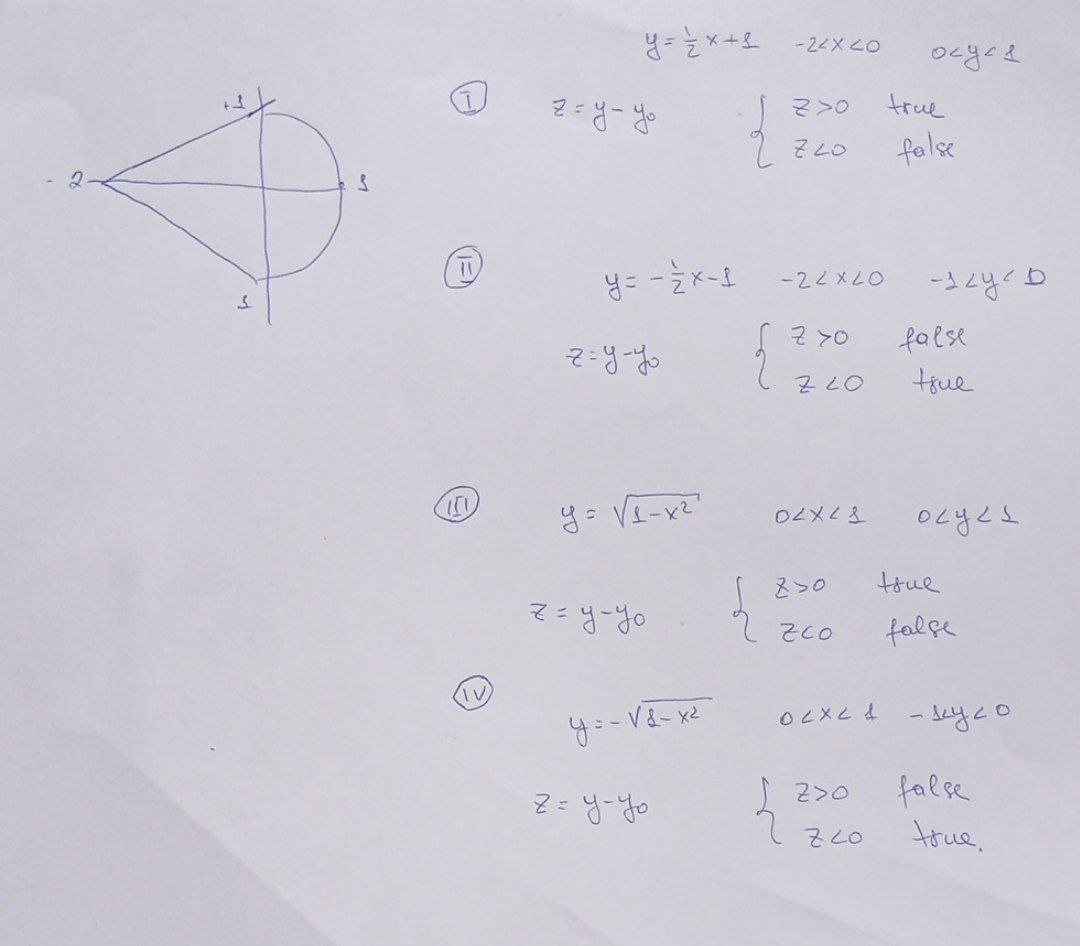 y = 1/2 x + 1   -2<x<0   0<y<1
+1
I   z = y - y₀   { z>0   true
z<0   false
-2   1
II   y = -1/2 x - 1   -2<x<0   -1<y<0
1
z = y - y₀   { z>0   false
z<0   true
III   y = √(1-x²)   0<x<1   0<y<1
z = y - y₀   { z>0   true
z<0   false
IV   y = -√(1-x²)   0<x<1   -1<y<0
z = y - y₀   { z>0   false
z<0   true.